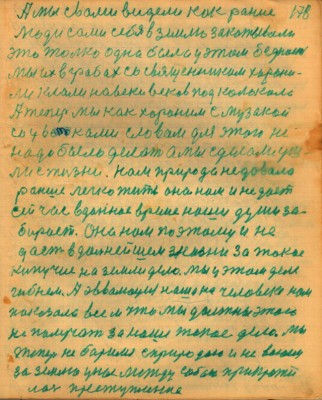 А мы с вами видели как ранше 178
люди сами себя в землю закапывали
это толко одна была у этом бедност
Мы их в гробах со священником хорони-
ли клали навеки веков под колокола
А тепер мы как хороним с музыкой
со словам для этого не
надо было делат а мы сделали у
жизни. нам природа недовала
ранше легко жить она нам и не дает
сейчас в данное время наши души за-
бирает. Она нам поэтому и не
даст в далнейшем жизни за такое
на земли дело. мы у этом деле
гибнем. А эволюция наша на человека нам
показала всем что мы должны этого
не получат за наше такое дело. Мы
тепер не с природою и не
за землю у нас между собою
лох преступление